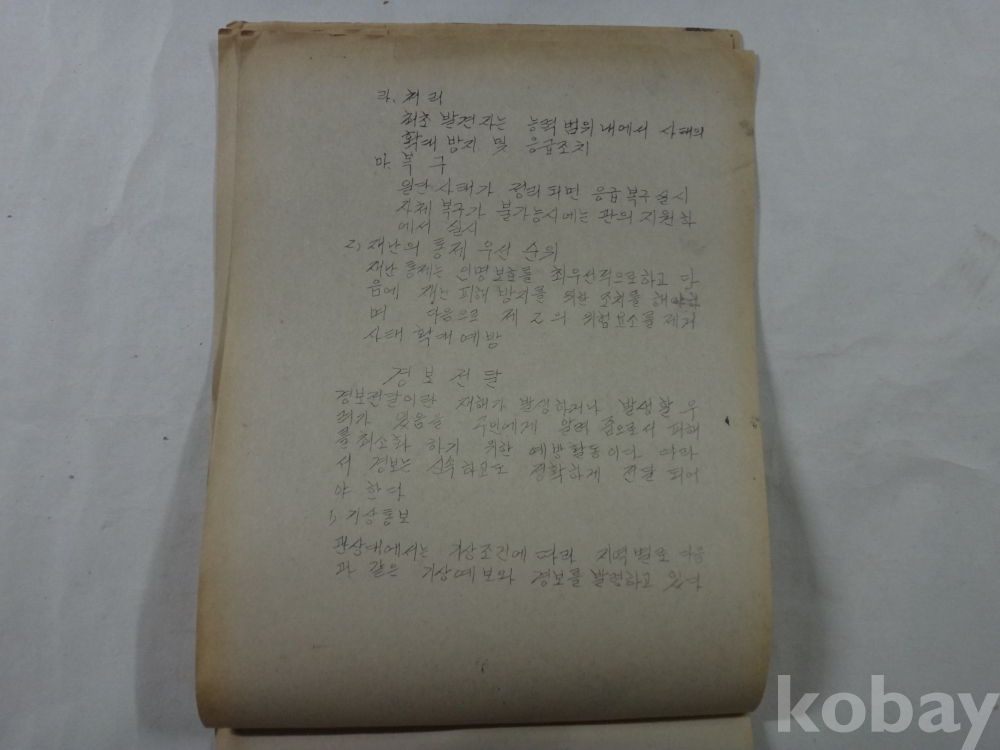 라. 처리
최초 발견자는 능력 범위 내에서 사태의
확대 방지 및 응급조치
마. 복구
일단 사태가 정리되면 응급복구 실시
자체 복구가 불가능시에는 관의 지원하
에서 실시
2) 재난의 통제 우선 순위
재난 통제는 인명보호를 최우선적으로하고 다
음에 재난 피해 방지를 위한 조치를 해야하
며 다음으로 제 2의 위험요소를 제거
사태 확대예방
경보전달
경보전달이란 재해가 발생하거나 발생할 우
려가 있음을 주민에게 알려 줌으로서 피해
를 최소화 하기 위한 예방활동이다 따라
서 경보는 신속하고도 정확하게 전달 되어
야 한다
1) 기상통보
관상대에서는 기상조건에 따라 지역별로 다음
과 같은 기상예보와 경보를 발령하고 있다
kobay